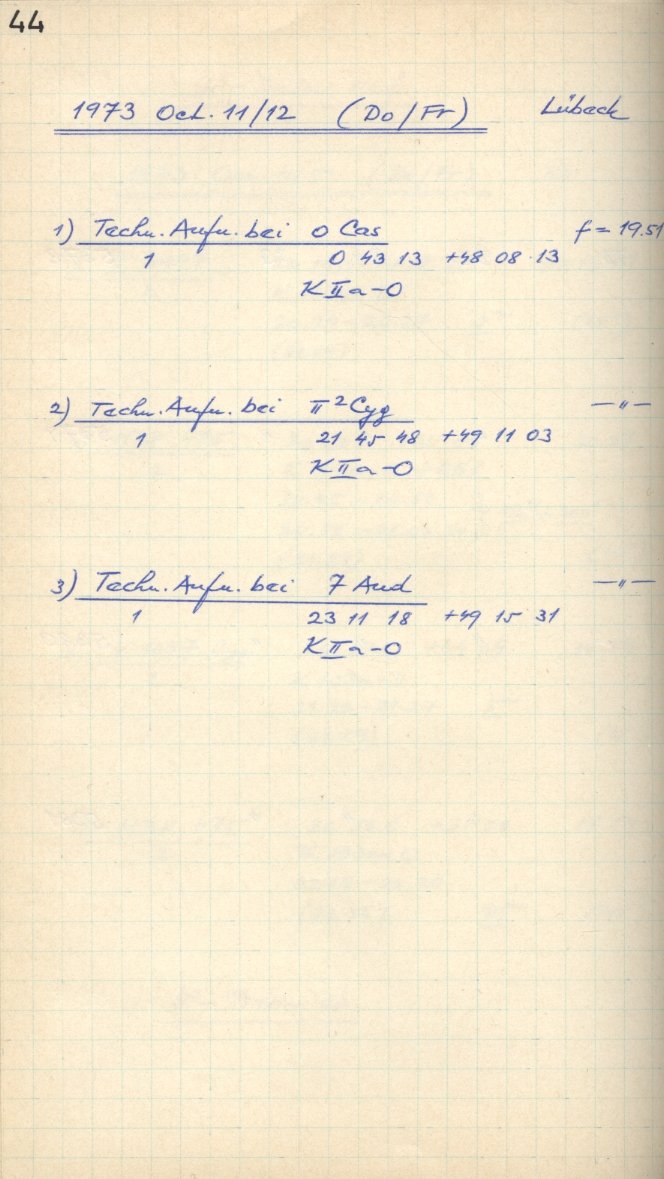 44
1973 Oct. 11/12 (Do/Fr) Lübeck
1) Techn. Aufn. bei o Cas f = 19.51
1 0 43 13 +48 08 13
K II a-O
2) Techn. Aufn. bei π² Cyg —"—
1 21 45 48 +49 11 03
K II a-O
3) Techn. Aufn. bei 7 And —"—
1 23 11 18 +49 15 31
K II a-O